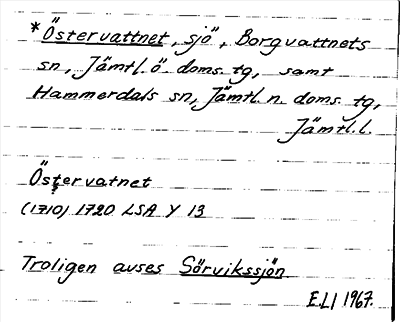 *Östervattnet, sjö, Borgvattnets
sn, Jämtl. ö. doms. tg, samt
Hammerdals sn, Jämtl. n. doms. tg,
Jämtl.l.
Östervatnet
(1710) 1720 LSA Y 13
Troligen avses Sörvikssjön
E.LI 1967.